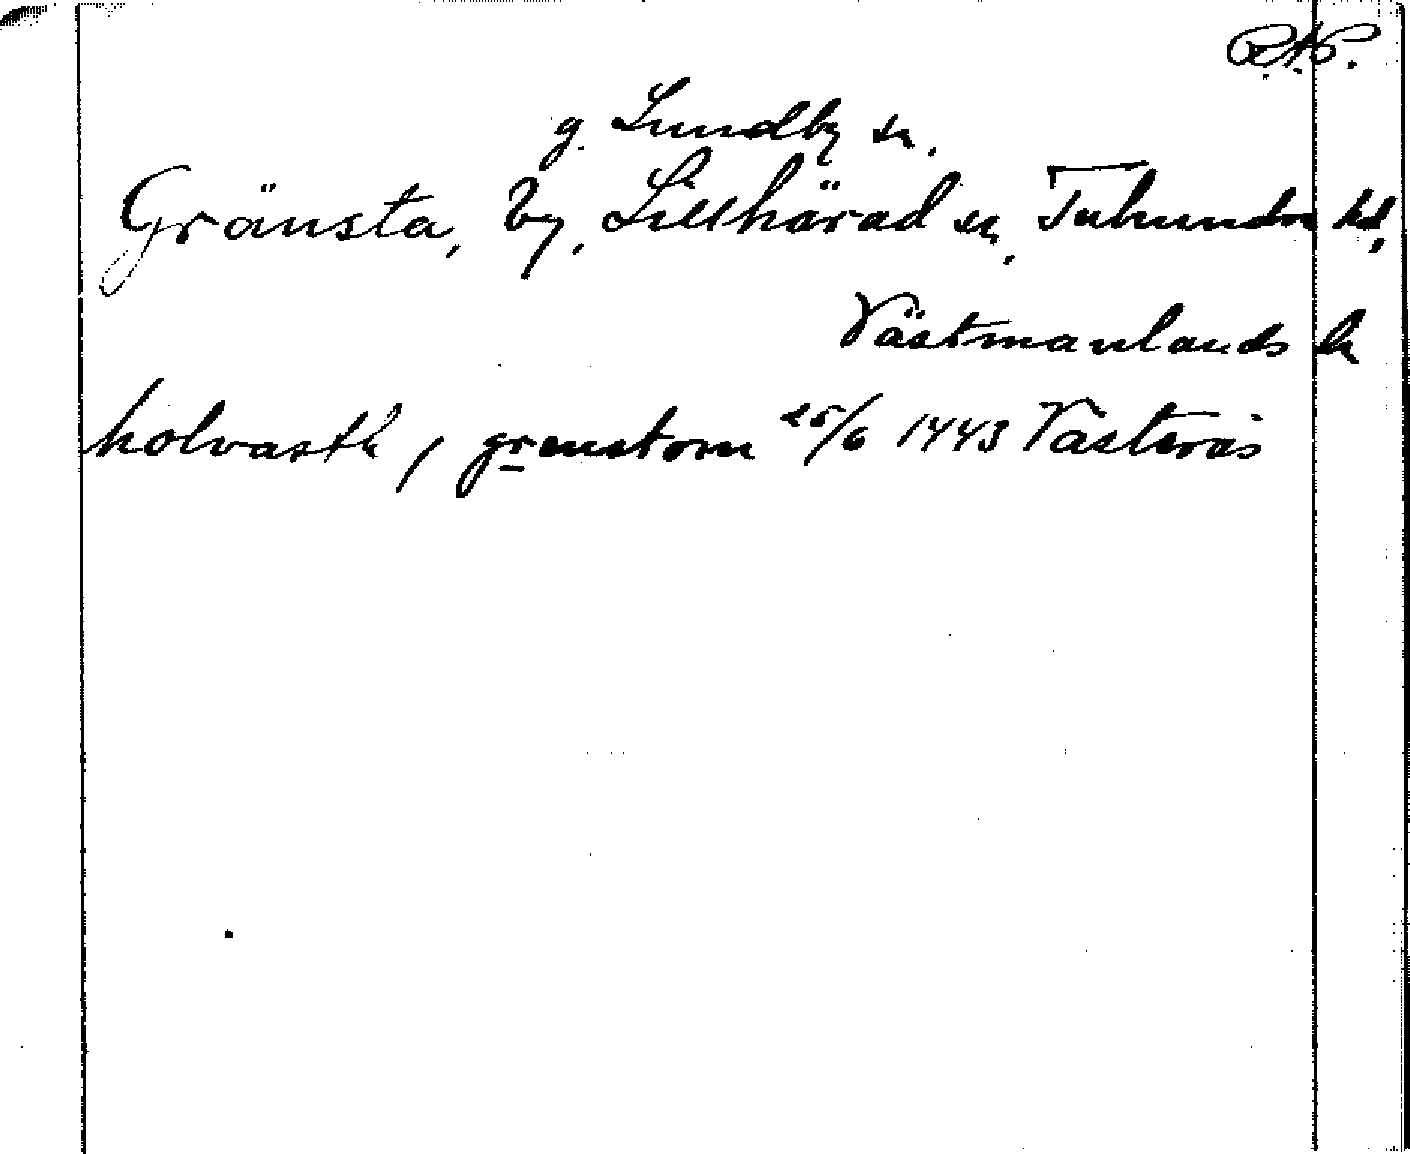 R.A.P.
g. Lundby sn.
Gränsta, by, Lillhärad sn, Tuhundra hd,
Västmanlands l.
holvasth / grenstom 25/6 1443 Västerås